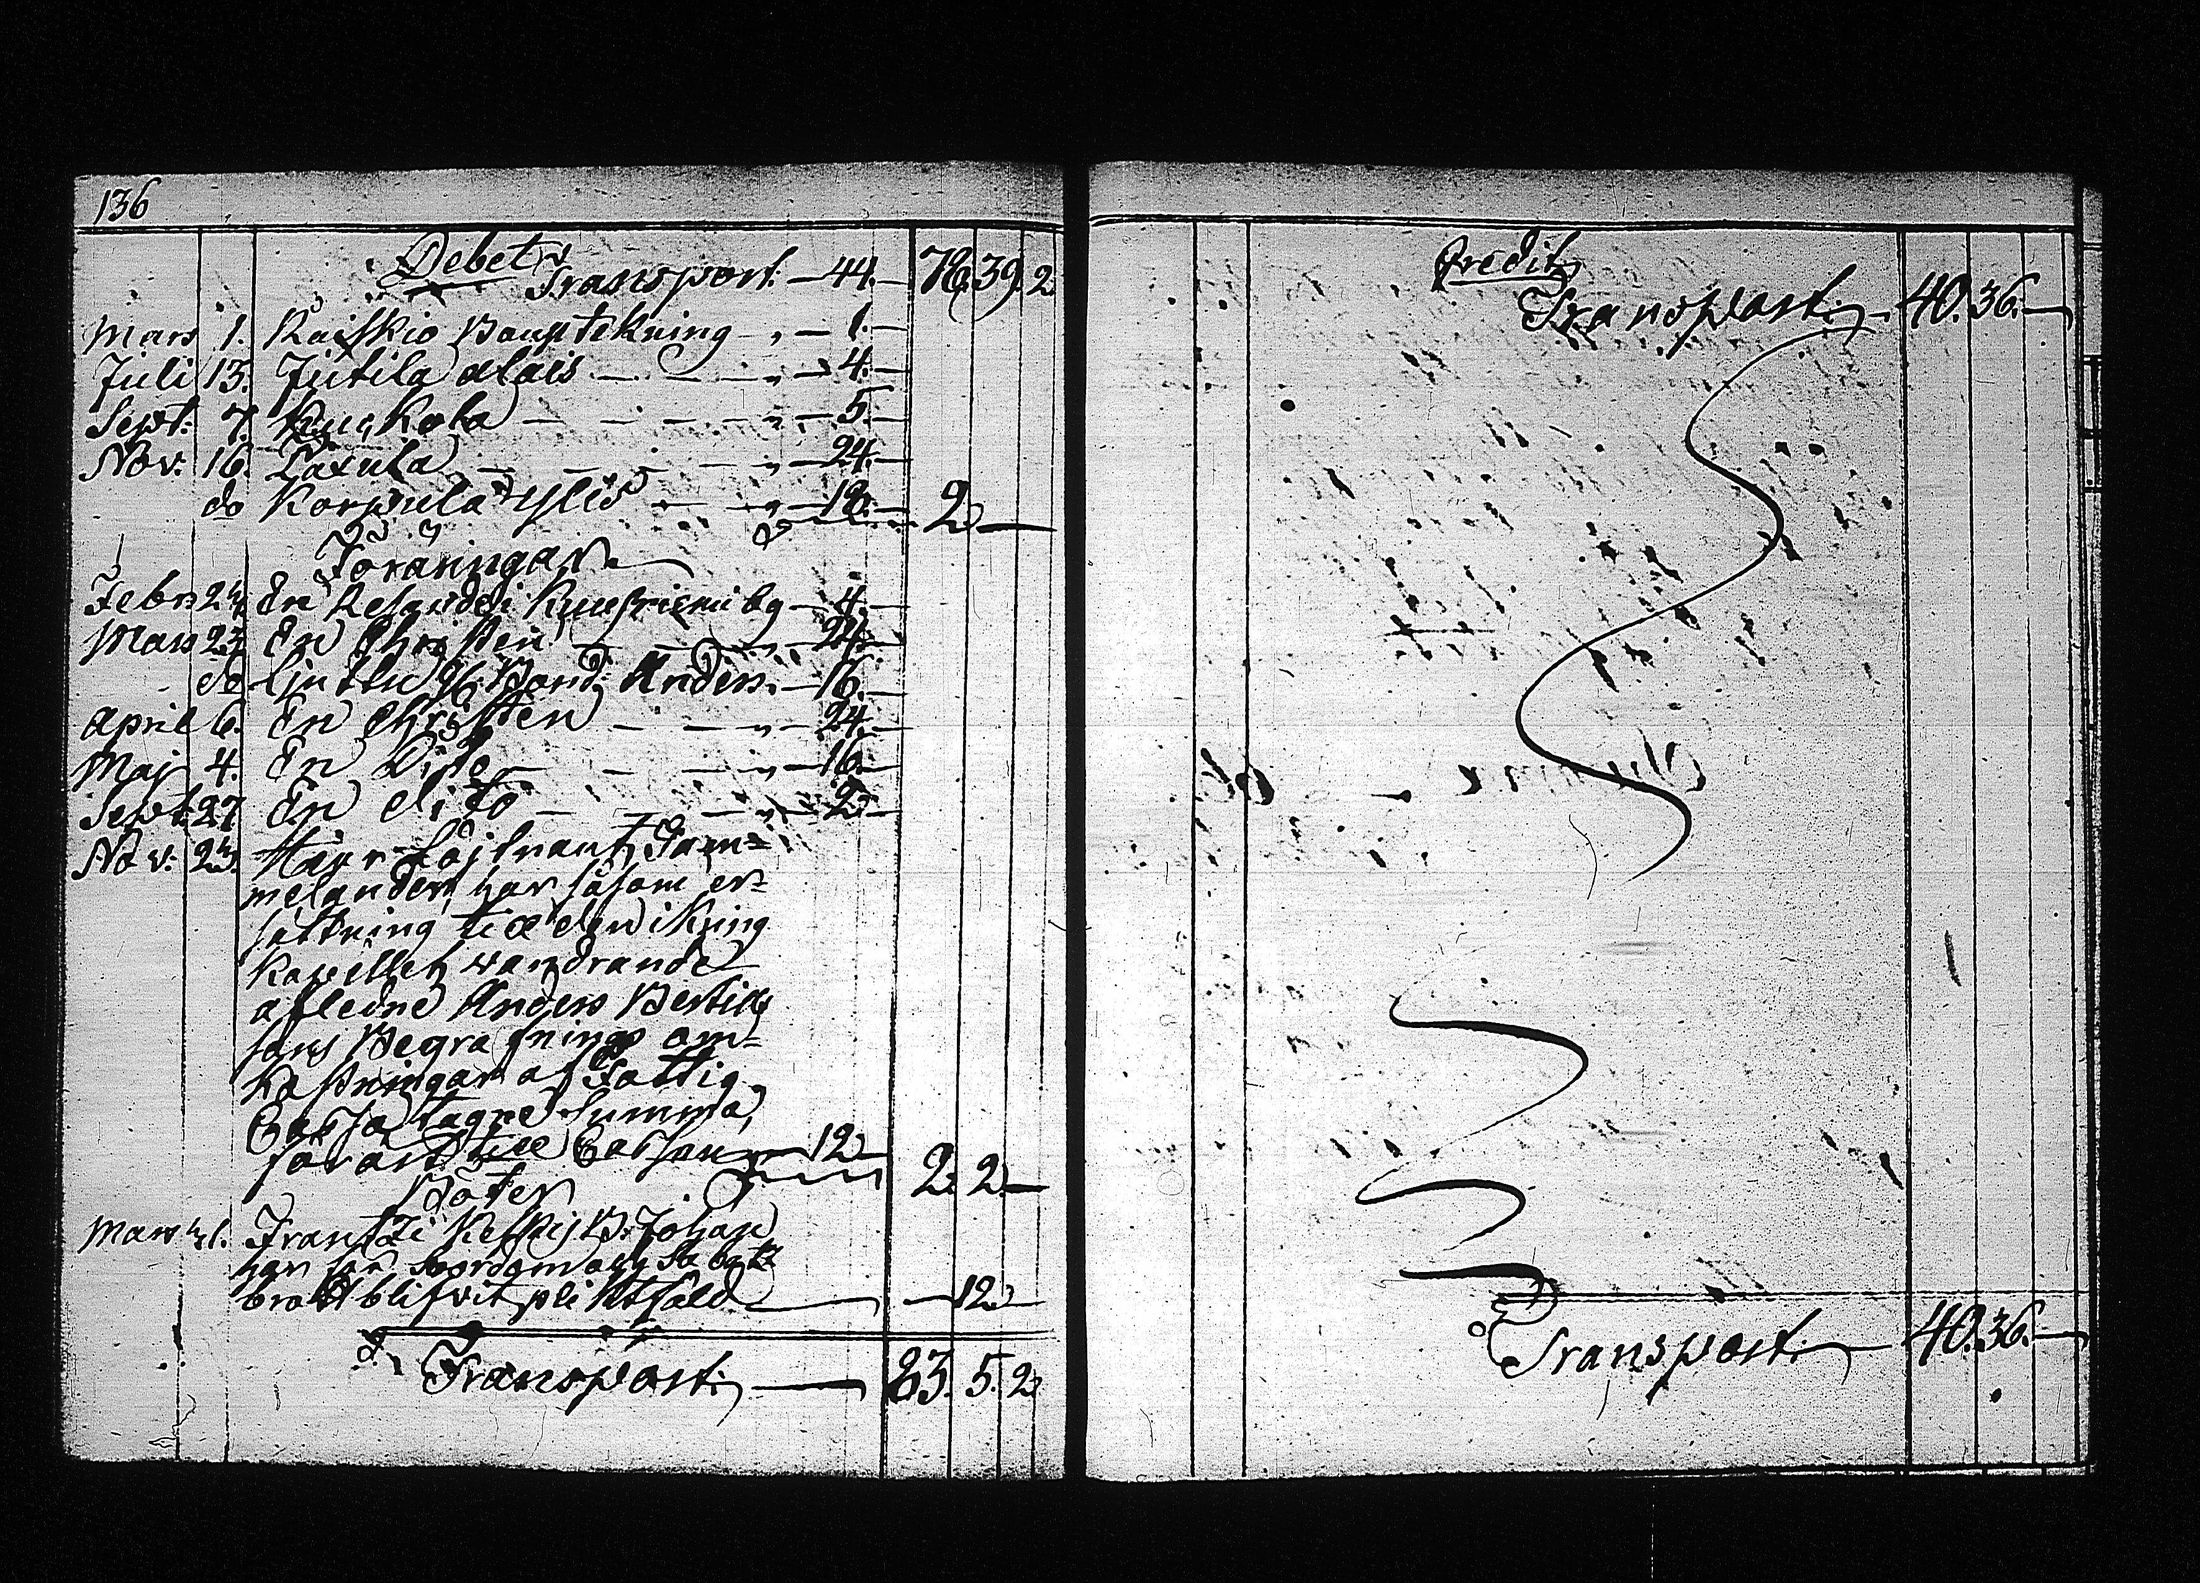 136
Debet
Transport. — 44. — 78. 39. 2
Mars 1. Raiskio Bouptekning — 1. —
Juli 13. Jutila Alais — 4. —
Sept: 7. Kuckola — 5 —
Nov: 16. Laxula — 24. —
do Korpula Ylis — 18. — 2 —
Föräringar
Febr: 24 En Resande i by — 4. —
Mars 23 En Christen — 24. —
do Bond: Anders. — 16. —
April 6. En Christen — 24. —
Maj 4. En Dito — 16 —
Sept 27 En dito — 2 —
Nov: 23. Herr Löjtnant Gam=
melander, har såsom er=
sättning till den ikring
Kapellet wandrande
afledne Anders Bertils
sons Begrafnings om=
kostningar af Fattig
Cassa tagne Summa,
förärt till Cassan — 12 — 2. 2. —
Böter
Mars 31. Frantzi Keskis B: Johan
har för Sabatz
brott blifvit pliktfäld — 12 —
Transport. — 83. 5. 2
Credit
Transport. — 40. 36. —
Transport. — 40. 36. —